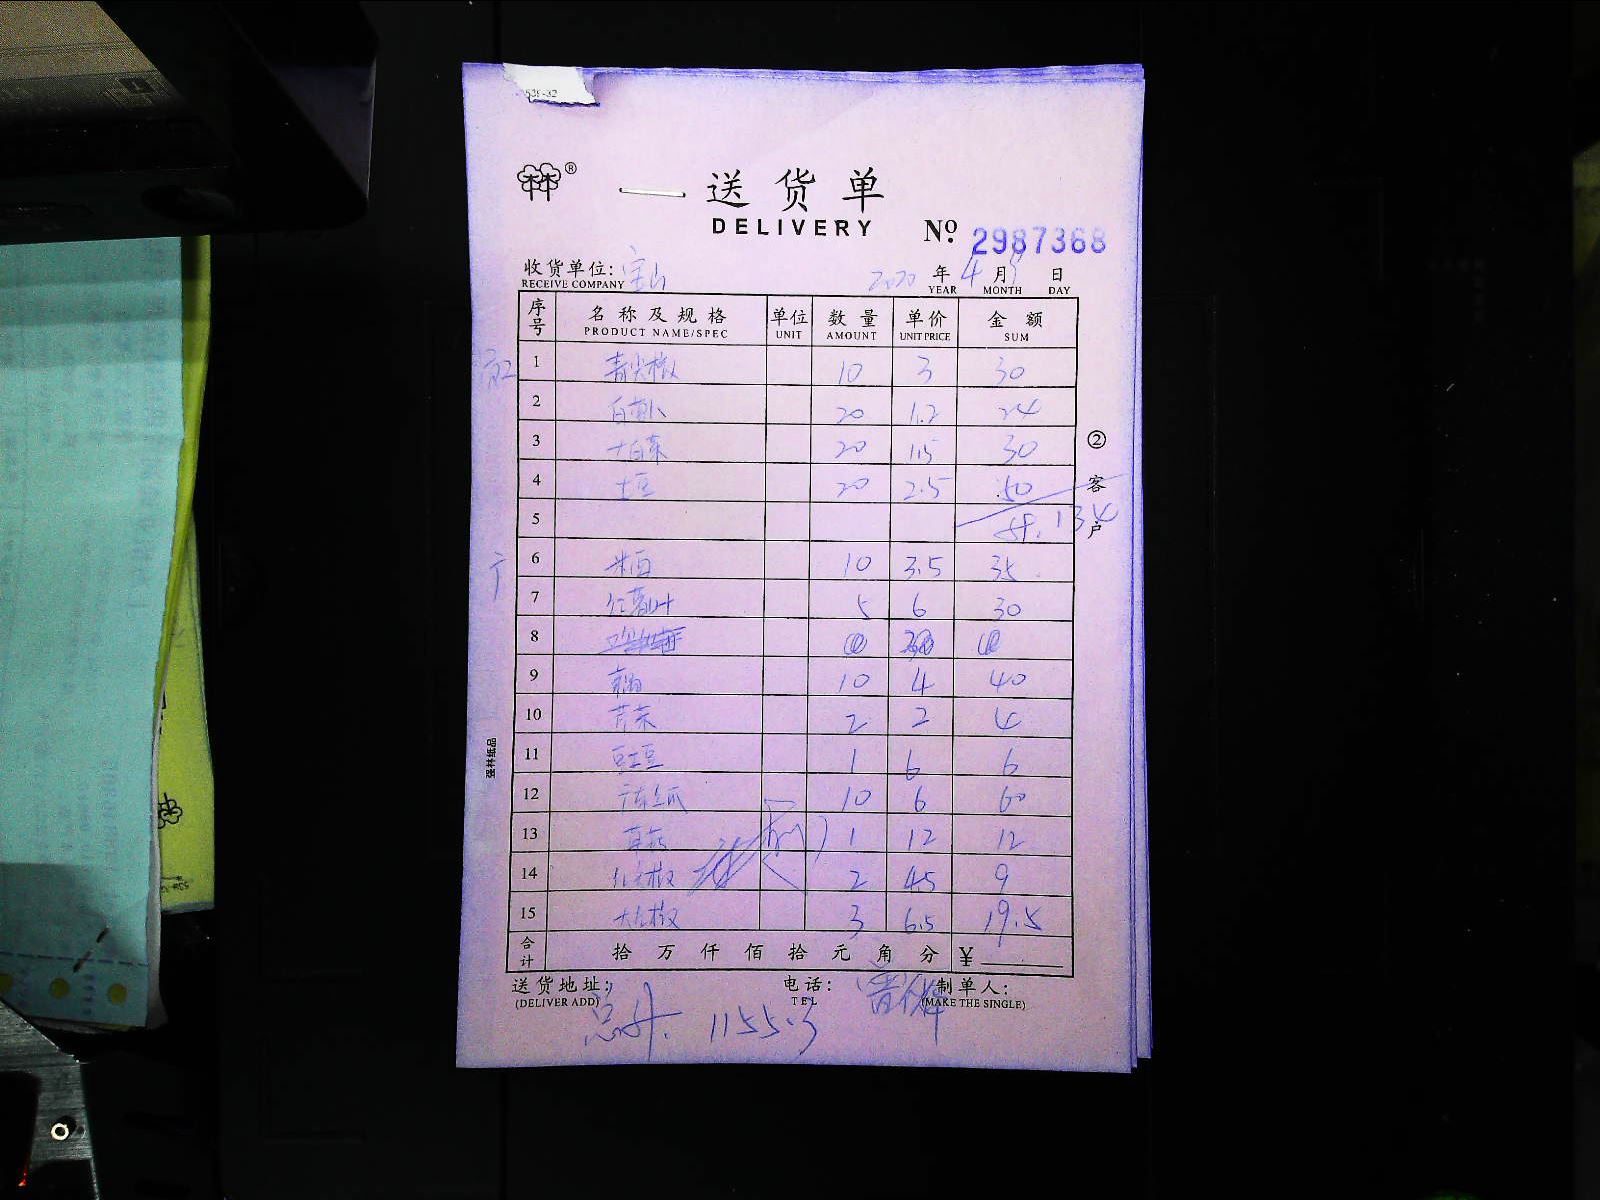 528-32
®
送货单
DELIVERY
Nº. 2987368
收货单位: 宝山 2020 年 4 月 日
RECEIVE COMPANY YEAR MONTH DAY
序号 名称及规格 单位 数量 单价 金额
PRODUCT NAME/SPEC UNIT AMOUNT UNIT PRICE SUM
1 青尖椒 10 3 30
2 白萝卜 20 1.2 24
3 大白菜 20 1.5 30
4 土豆 20 2.5 50
5 计. 134
6 10 3.5 35
7 红薯叶 5 6 30
8
9 10 4 40
10 芹菜 2 2 4
11 豆 1 6 6
12 丝瓜 10 6 60
13 1 12 12
14 红尖椒 2 4.5 9
15 大红椒 3 6.5 19.5
合计 拾万仟佰拾元角分 ¥
送货地址: 电话: 制单人:
(DELIVER ADD) TEL (MAKE THE SINGLE)
总计. 1155.3
② 客户
强林纸品